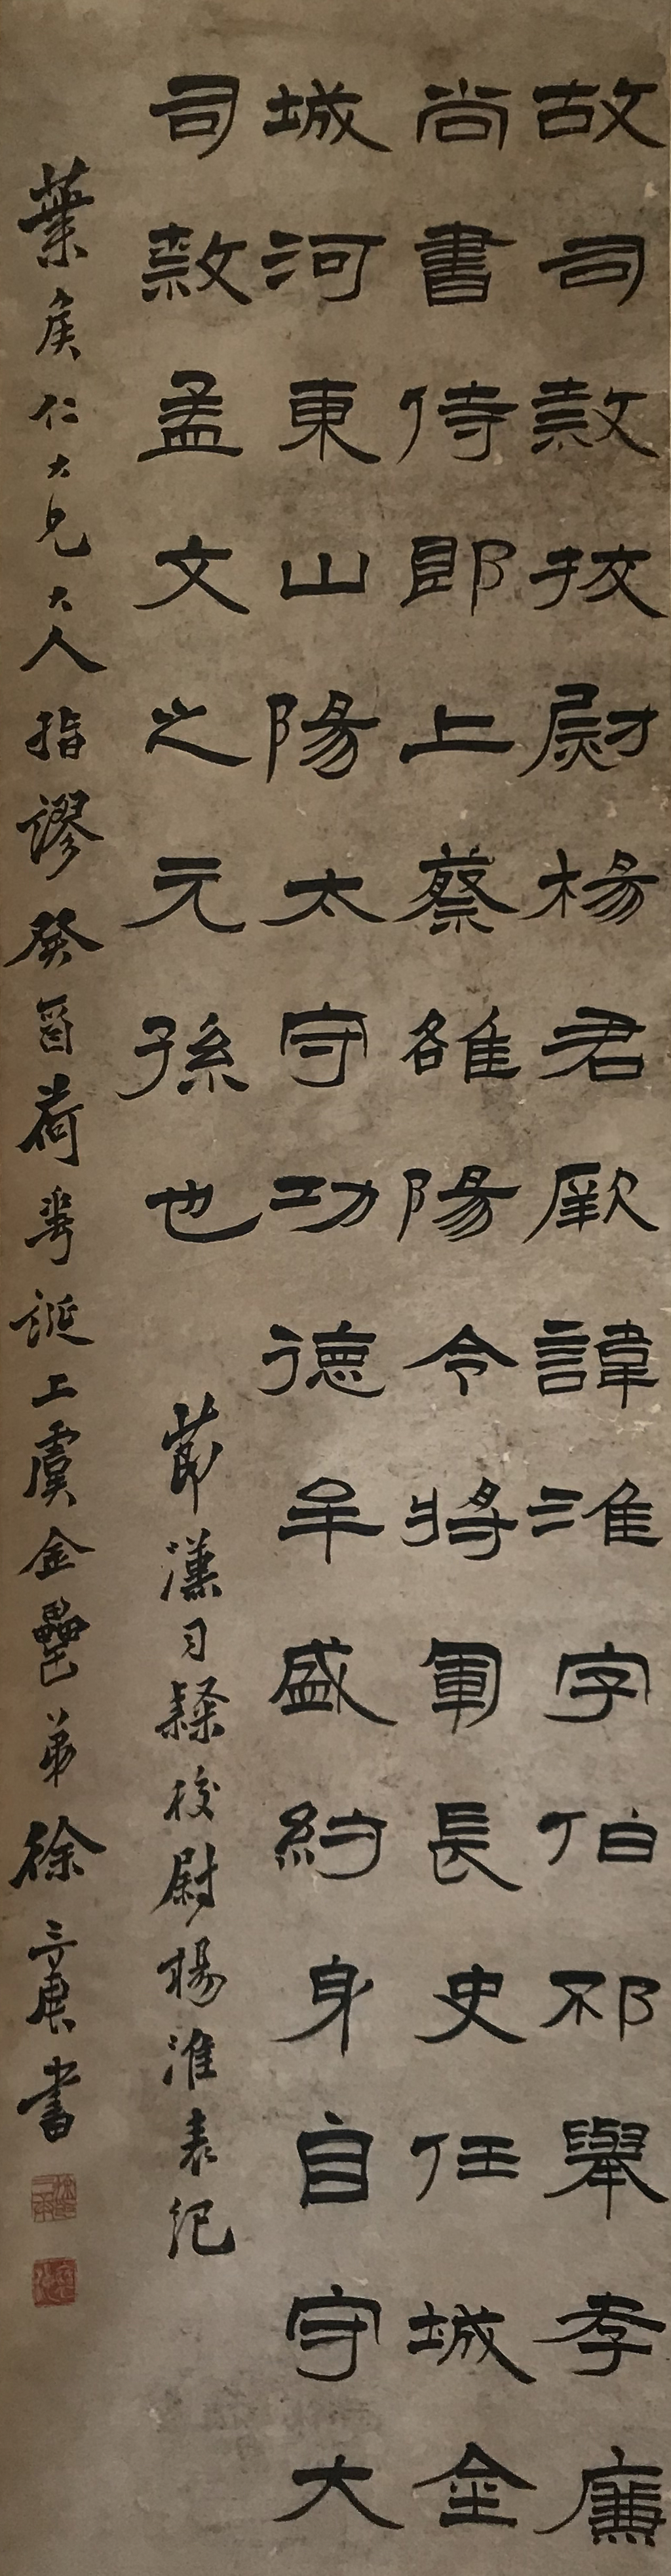 故司敹挍尉楊君厥諱淮字伯邳舉孝廉
尚書侍郎上蔡雒陽令將軍長史任城金
城河東山陽太守功德牟盛約身自守大
司敹孟文之元孫也
節漢司隸校尉楊淮表紀
葉矦仁大兄大人指謬癸酉荷月誕上虞金罍弟徐三庚書